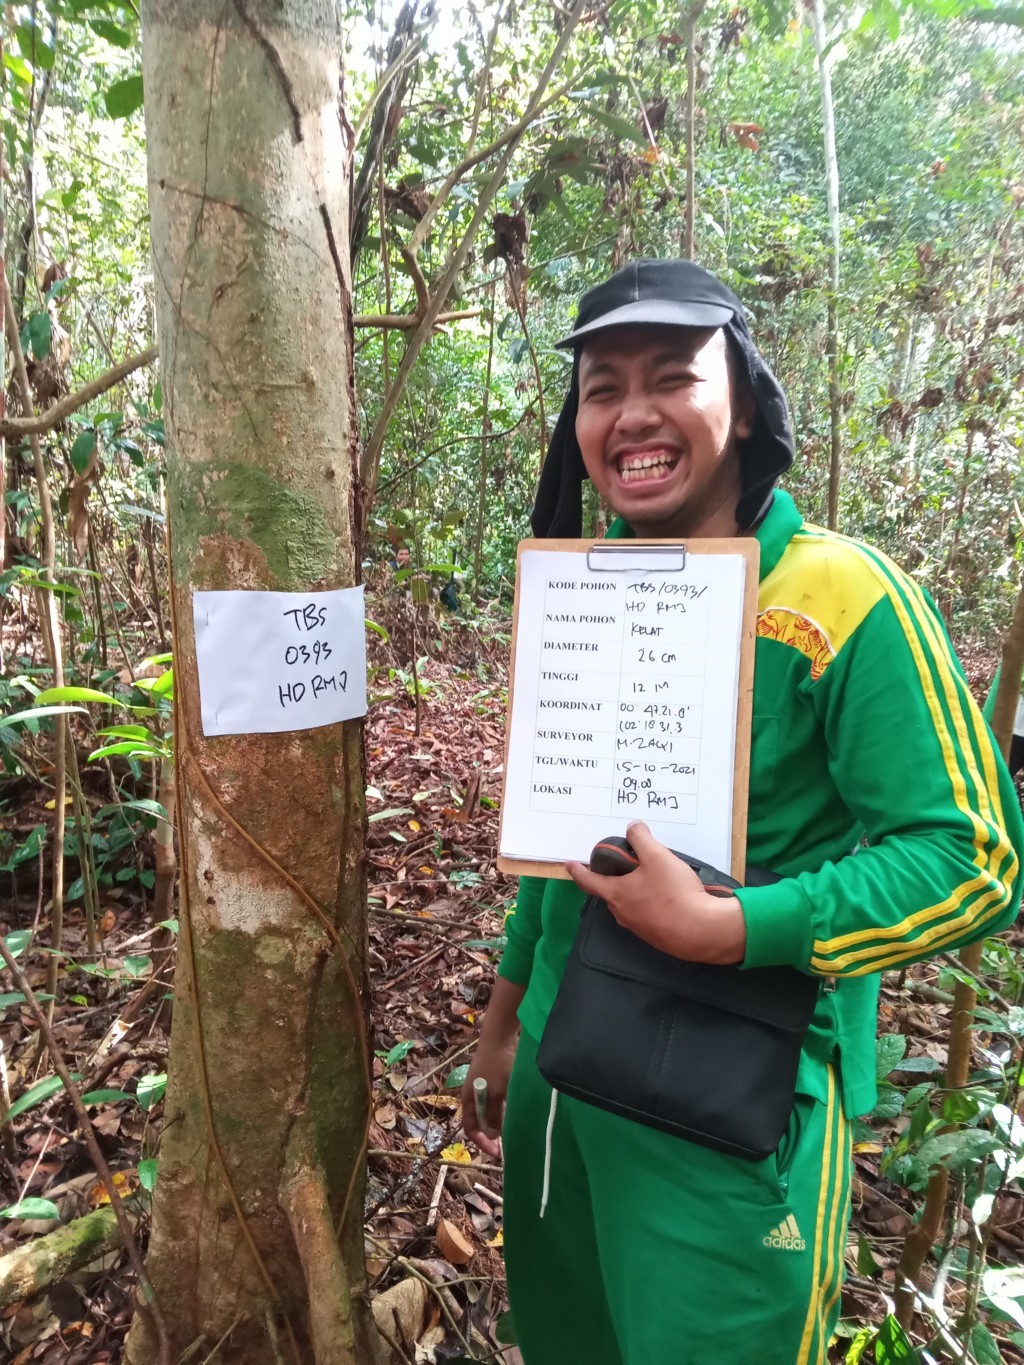 TBS
0393
HD RMJ
KODE POHON TBS/0393/
HD RMJ
NAMA POHON KELAT
DIAMETER 26 cm
TINGGI 12 M
KOORDINAT 00° 47.21.8'
102° 18 31.3
SURVEYOR M. ZAQI
TGL/WAKTU 15-10-2021
09.00
LOKASI HD RMJ
adidas